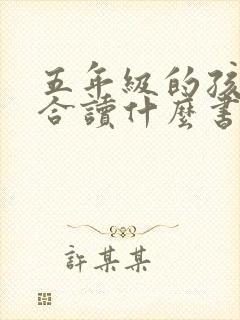 五年級的孩
合讀什麼書
許某某